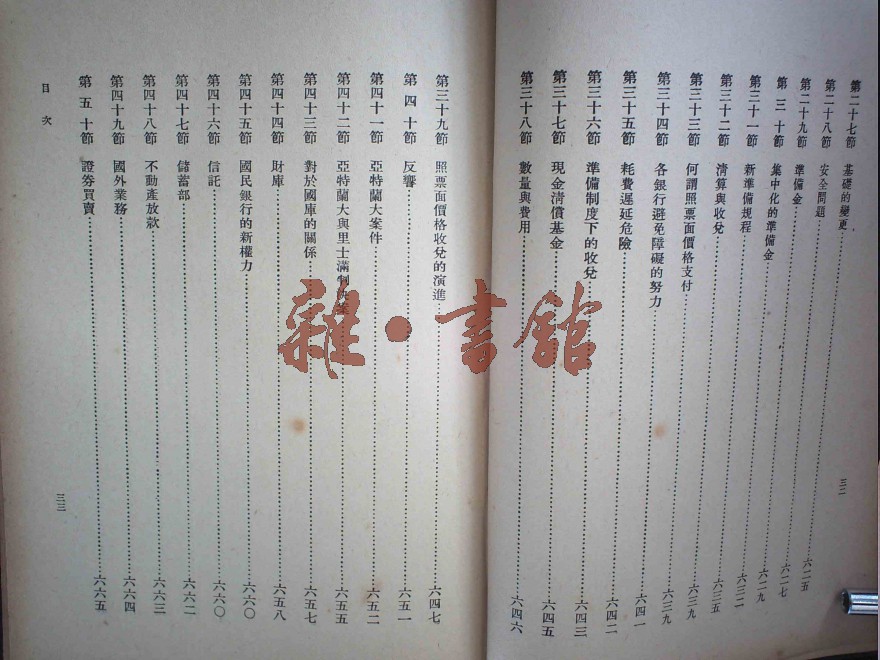 第二十七節 基礎的變更……六二五
第二十八節 安全問題……六二七
第二十九節 準備金……六二九
第三十節 集中化的準備金……六三二
第三十一節 新準備規程……六三五
第三十二節 淸算與收兌……六三九
第三十三節 何謂照票面價格支付……六三九
第三十四節 各銀行避免障礙的努力……六四一
第三十五節 耗費遲延危險……六四二
第三十六節 準備制度下的收兌……六四三
第三十七節 現金淸償基金……六四五
第三十八節 數量與費用……六四六
三二
第三十九節 照票面價格收兌的演進……六四七
第四十節 反響……六五一
第四十一節 亞特蘭大案件……六五二
第四十二節 亞特蘭大與里士滿判決案……六五五
第四十三節 對於國庫的關係……六五七
第四十四節 財庫……六五八
第四十五節 國民銀行的新權力……六六〇
第四十六節 信託……六六〇
第四十七節 儲蓄部……六六二
第四十八節 不動產放款……六六三
第四十九節 國外業務……六六四
第五十節 證券買賣……六六五
目次
三三
雜·書館